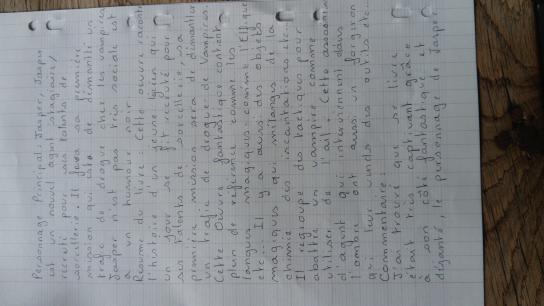 Personnage Principal: Jasper, Jasper
est un nouvel agent stagiaire,
recruté pour ses talents de
sorcellerie. Il fera sa première
mission qui sera de démantlé un
trafic de drogue chez les vampires
Jasper n'est pas très sociale et
a un humour noir
Résumé du livre: Cette œuvre raconte
l'histoire un jeune lycéen qui
un jour se fait recruté pour
ses talents de sorcellerie sa
première mission sera de démantler
un trafic de drogue de vampires.
Cette œuvre fantastique contient
plein de référence comme les
langues magiques comme l'elfique
etc... Il y a aussi des objets
magiques qui mélanges de la
chimie des incantations etc...
Il regroupe des tactiques pour
abattre un vampire comme
utiliser de l'ail. Cette association
d'agent qui interviennent dans
l'ombre ont aussi un forgeron
qui leur vends des outils etc...
Commentaire:
J'ai trouvé que se livre
était très captivant grâce
à son côté fantastique et
déjanté, le personnage de Jasper